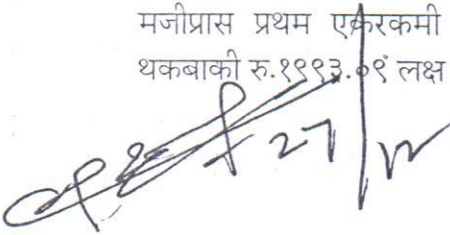 मजीप्रास प्रथम एकरकमी
थकबाकी रु.१९९३.०९ लक्ष
27/